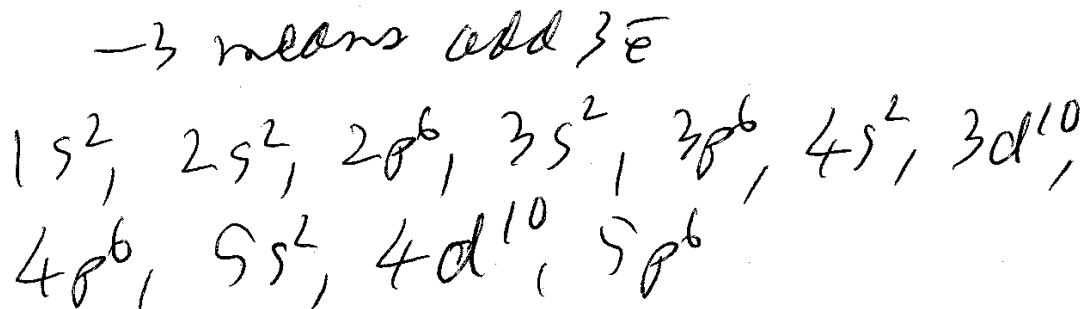 -3 means add 3ē
1s², 2s², 2p⁶, 3s², 3p⁶, 4s², 3d¹⁰,
4p⁶, 5s², 4d¹⁰, 5p⁶